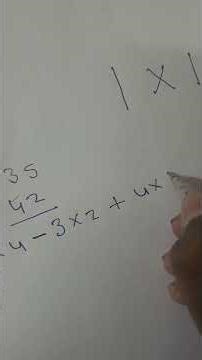 | x |
35
42
4 - 3x2 + 4x